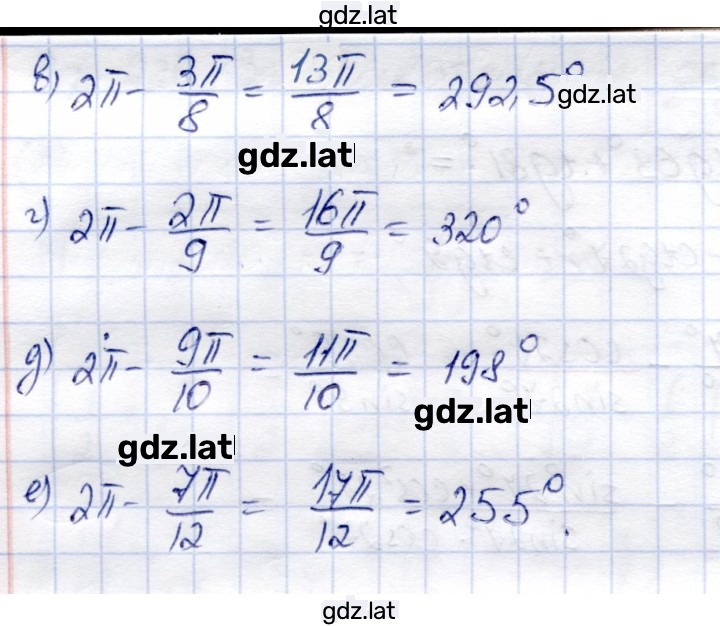 gdz.lat
в) 2π - 3π/8 = 13π/8 = 292,5°
gdz.lat
gdz.lat
г) 2π - 2π/9 = 16π/9 = 320°
д) 2π - 9π/10 = 11π/10 = 198°
gdz.lat
gdz.lat
е) 2π - 7π/12 = 17π/12 = 255°.
gdz.lat